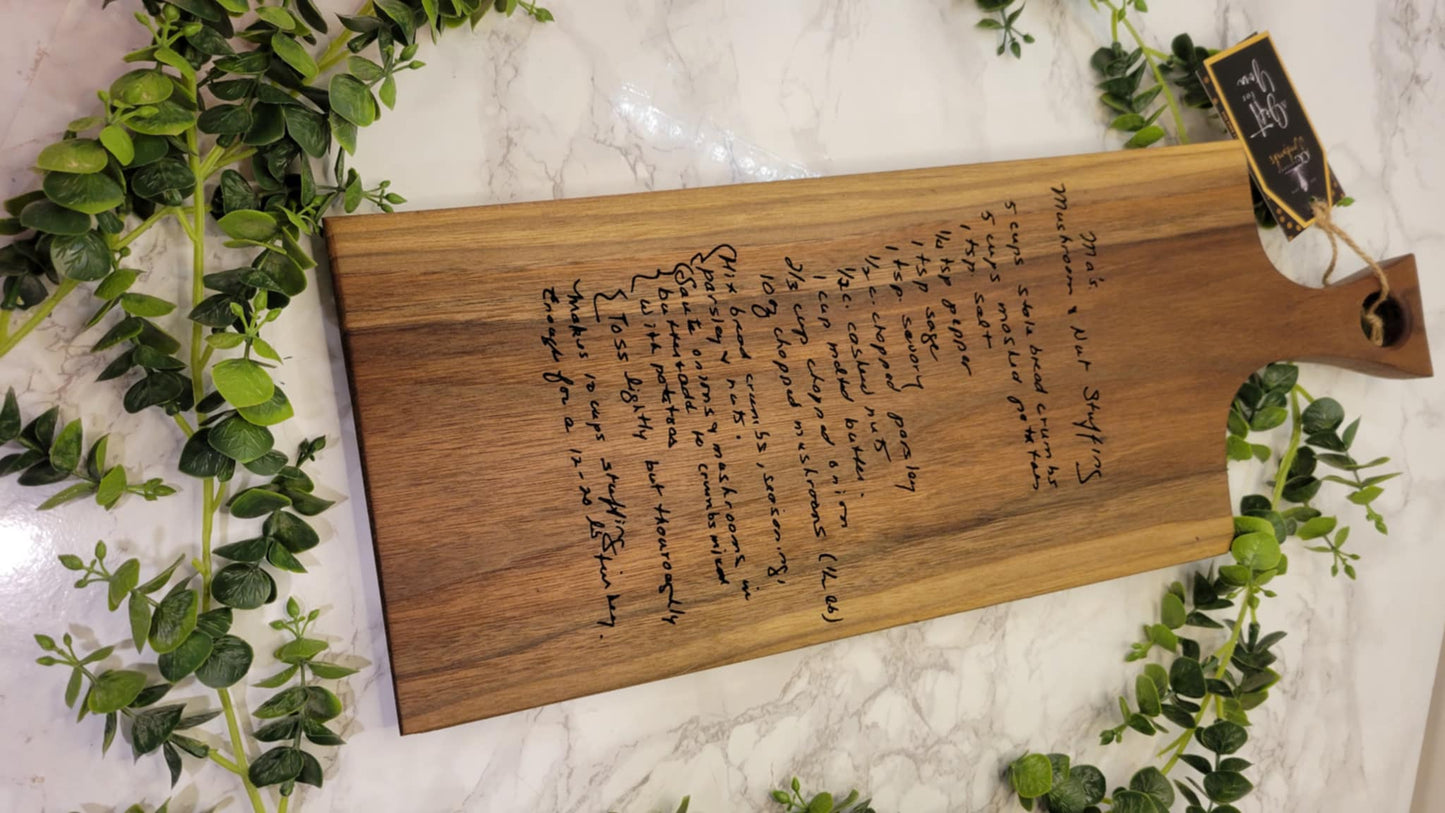 Ma's
Mushroom & Nut Stuffing
5 cups stale bread crumbs
5 cups mashed potatoes
1 tsp salt
1/4 tsp pepper
1 tsp sage
1 tsp. savory
1/2 c. chopped parsley
1/2 c. cashew nuts
1 cup melted butter.
2/3 cup chopped onion
10oz chopped mushrooms (1/2 lb)
Mix bread crumbs, seasoning,
parsley & nuts.
Saute onions & mushrooms in
butter & add to crumbs mixed
with potatoes
Toss lightly but thouroughly
Makes 10 cups stuffing
enough for a 12-20 lb turkey.
A
Gift
For
You